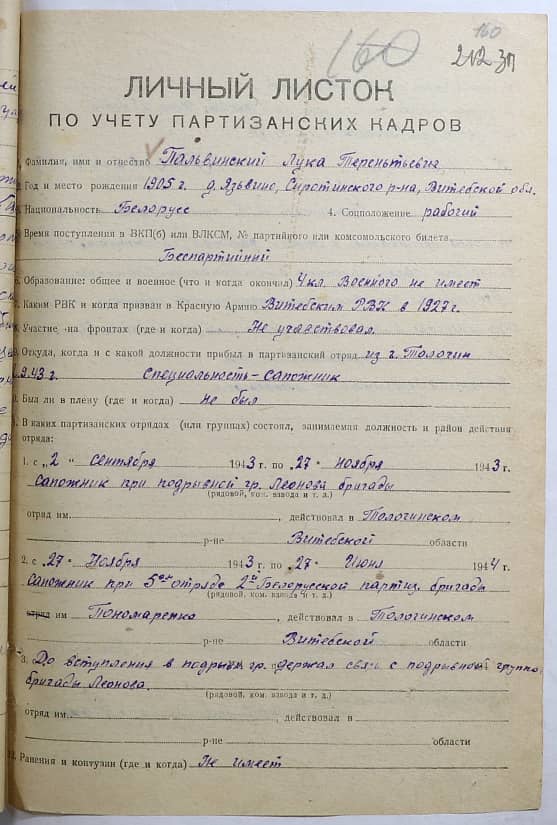 160
160
212 зп
ЛИЧНЫЙ ЛИСТОК
ПО УЧЕТУ ПАРТИЗАНСКИХ КАДРОВ
Фамилия, имя и отчество Пальвинский Лука Терентьевич
Год и место рождения 1905 г. д. Язьвино, Сиротинского р-на, Витебской обл.
Национальность Белорусс 4. Соцположение рабочий
Время поступления в ВКП(б) или ВЛКСМ, № партийного или комсомольского билета
Беспартийный
Образование: общее и военное (что и когда окончил) 4 кл. Военного не имеет
Каким РВК и когда призван в Красную Армию Витебским РВК в 1927 г.
Участие на фронтах (где и когда) Не участвовал
Откуда, когда и с какой должности прибыл в партизанский отряд из г. Толочин
9.43 г. Специальность - сапожник
Был ли в плену (где и когда) не был
В каких партизанских отрядах (или группах) состоял, занимаемая должность и район действия
отряда:
1. с „2" Сентября 1943 г. по „27" ноября 1943 г.
Сапожник при подрывной гр. Леонова бригады
(рядовой, ком. взвода и т. д.)
отряд им. , действовал в Толочинском
р-не Витебской области
2. с „27" Ноября 1943 г. по „27" Июня 1944 г.
Сапожник при 5ом отряде 2й Белорусской партиз. бригады
(рядовой, ком. взвода и т. д.)
отряд им Пономаренко , действовал в Толочинском
р-не Витебской области
3. До вступления в подрывн гр. держал связь с подрывной группой
бригады Леонова.
(рядовой, ком. взвода и т. д.)
отряд им. , действовал в
р-не области
Ранения и контузии (где и когда) Не имеет